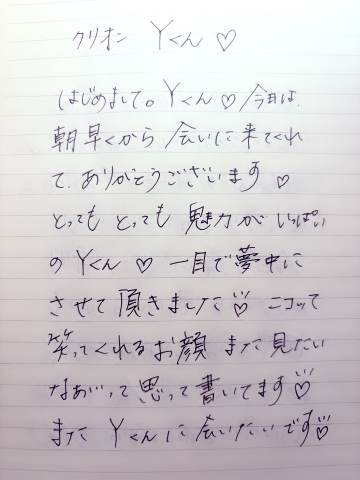 クリオン Yくん ♡
はじめまして。Yくん ♡ 今日は、
朝早くから 会いに来てくれ
て、ありがとうございます ♡
とっても とっても 魅力が いっぱい
の Yくん ♡ 一目で夢中に
させて頂きました♡ ニコッて
笑ってくれるお顔 また見たい
なぁ〜って思って書いてます♡
また Yくんに 会いたいです♡